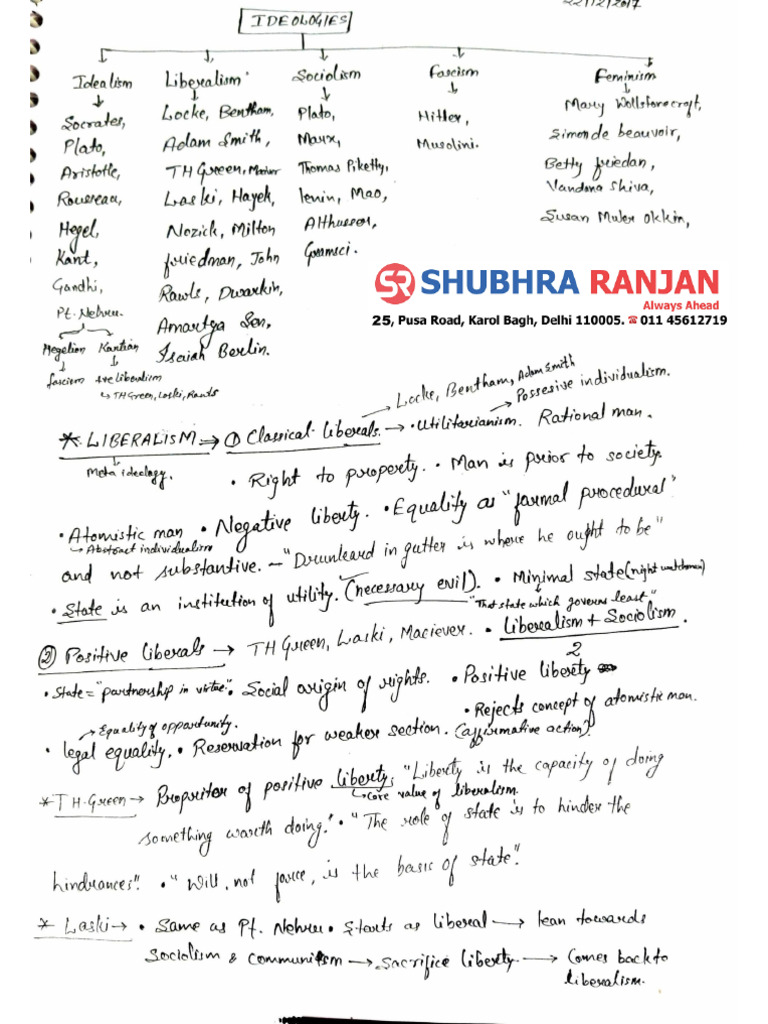 22/12/2017
IDEOLOGIES
Idealism
Socrates,
Plato,
Aristotle,
Rousseau,
Hegel,
Kant,
Gandhi,
Pt. Nehru.
Hegelian Kantian
fascism +ve liberalism
TH Green, Laski, Rawls
Liberalism
Locke, Bentham,
Adam Smith,
TH Green, Maciver
Laski, Hayek,
Nozick, Milton
friedman, John
Rawls, Dwarkin,
Amartya Sen,
Isaiah Berlin.
Sociolism
Plato,
Marx,
Thomas Piketty,
lenin, Mao,
Althusser,
Gramsci.
fascism
Hitler,
Musolini.
Feminism
Mary Wollstonecraft,
Simon de beauvoir,
Betty friedan,
Vandana Shiva,
Susan Muler Okkin,
SR SHUBHRA RANJAN
Always Ahead
25, Pusa Road, Karol Bagh, Delhi 110005. ☎ 011 45612719
Locke, Bentham, Adam Smith
Possesive individualism.
* LIBERALISM → ① Classical liberals. → • Utilitarianism. Rational man.
Meta ideology.
• Right to property. • Man is prior to society.
• Atomistic man • Negative liberty. • Equality as "formal procedural"
Abstract individualism
and not substantive. – "Drunkard in gutter is where he ought to be"
• State is an institution of utility. (necessary evil). • Minimal state (night watchman)
"That state which governs least"
② Positive liberals → TH Green, Laski, Maciever. • liberalism + Sociolism
2
• State = "partnership in virtue". • Social origin of rights. • Positive liberty
• Rejects concept of atomistic man.
Equality of opportunity.
• legal equality. • Reservation for weaker section. (affirmative action)
* TH. Green → Propritor of positive liberty. "Liberty is the capacity of doing
core value of liberalism.
something warth doing." • "The role of state is to hinder the
hindrances". • "Will, not force, is the basis of state".
* Laski → • Same as Pt. Nehru • Starts as liberal → lean towards
Sociolism & Communitsm → Sacrifice liberty → Comes back to
liberalism.